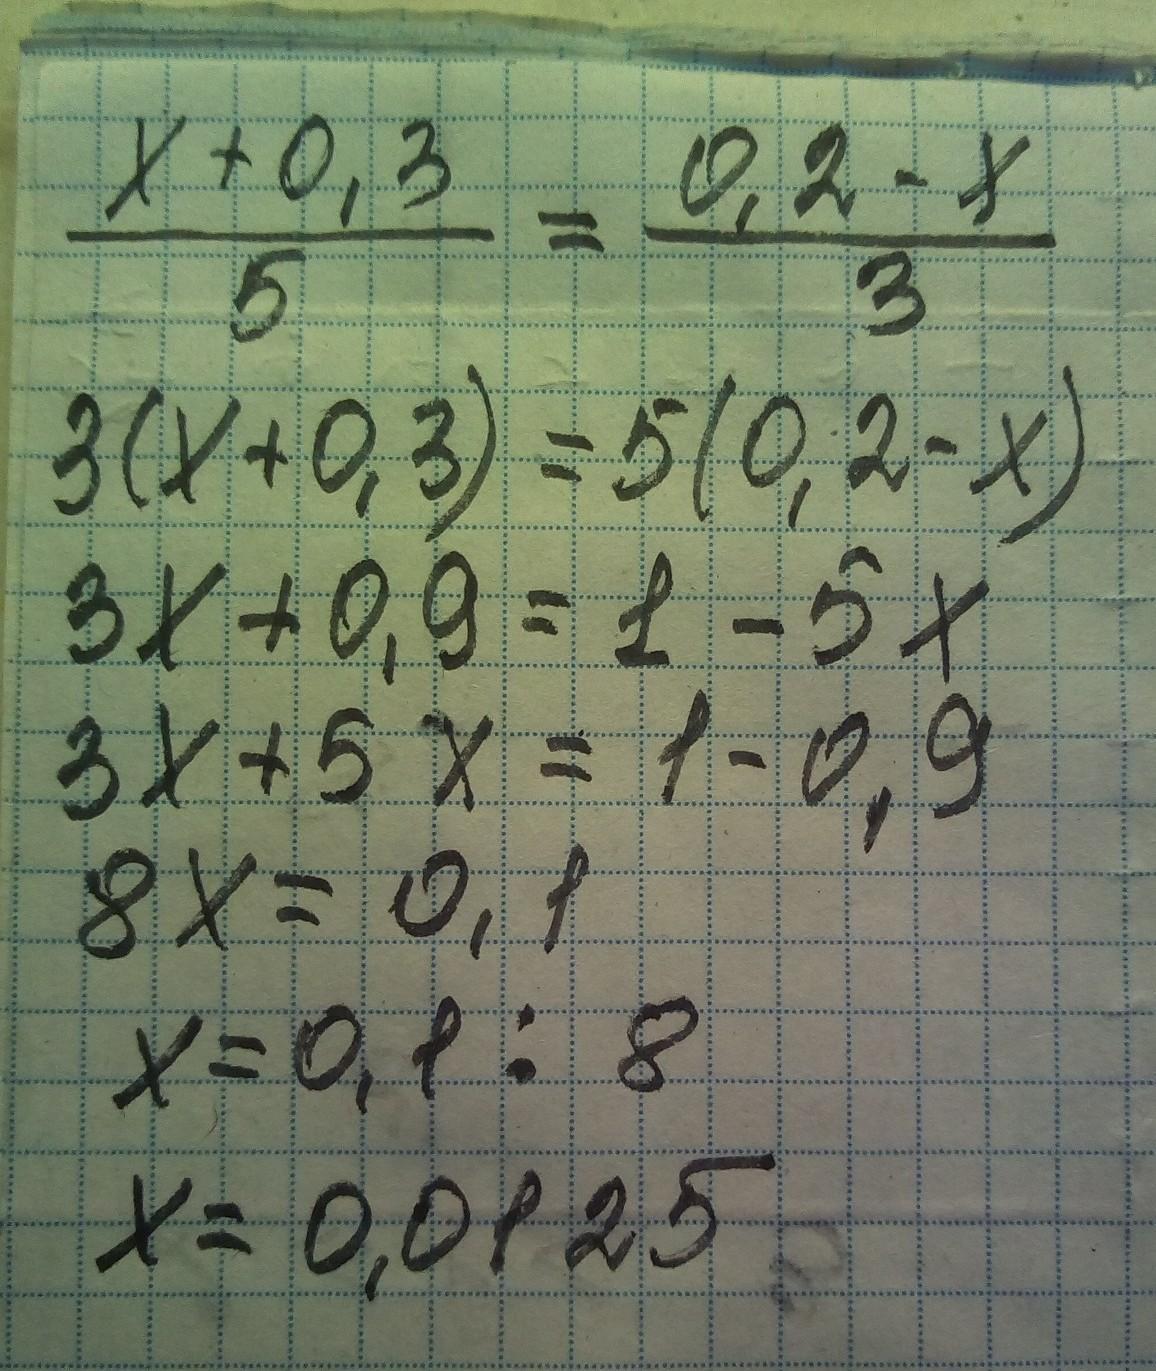 x+0,3/5 = 0,2-x/3
3(x+0,3)=5(0,2-x)
3x+0,9=1-5x
3x+5x=1-0,9
8x=0,1
x=0,1:8
x=0,0125